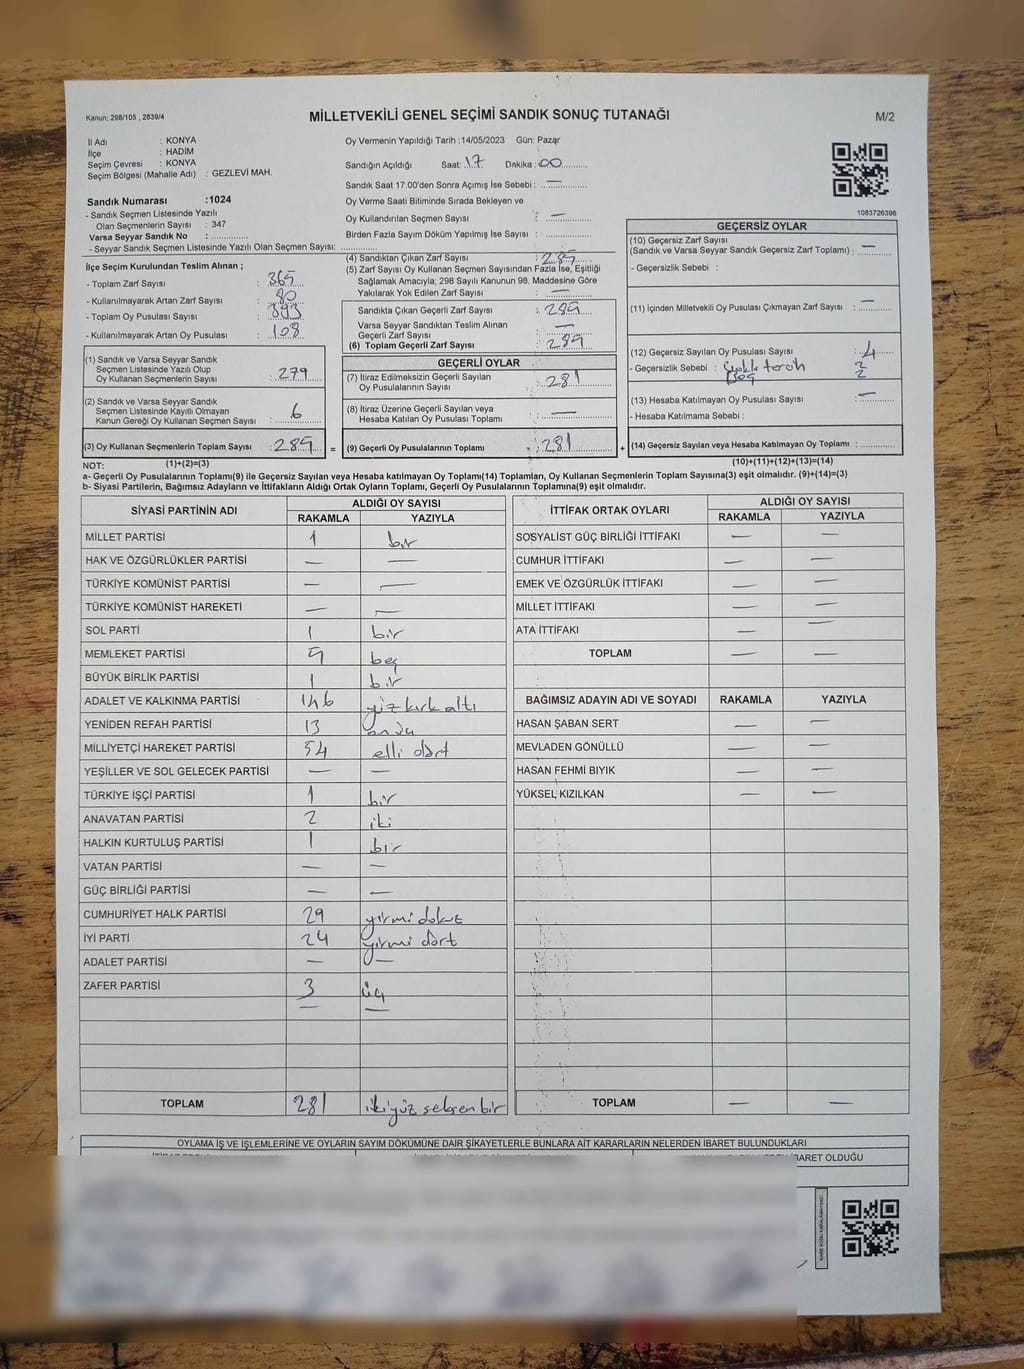 Kanun: 298/105 , 2839/4
MİLLETVEKİLİ GENEL SEÇİMİ SANDIK SONUÇ TUTANAĞI
M/2
İl Adı : KONYA
İlçe : HADİM
Seçim Çevresi : KONYA
Seçim Bölgesi (Mahalle Adı) : GEZLEVİ MAH.
Oy Vermenin Yapıldığı Tarih : 14/05/2023 Gün: Pazar
Sandığın Açıldığı Saat: 17 Dakika: 00
Sandık Saat 17:00'den Sonra Açımış İse Sebebi : —
Oy Verme Saati Bitiminde Sırada Bekleyen ve
Oy Kullandırılan Seçmen Sayısı : —
Birden Fazla Sayım Döküm Yapılmış İse Sayısı :
1083726396
Sandık Numarası :1024
- Sandık Seçmen Listesinde Yazılı
Olan Seçmenlerin Sayısı : 347
Varsa Seyyar Sandık No :
- Seyyar Sandık Seçmen Listesinde Yazılı Olan Seçmen Sayısı:
İlçe Seçim Kurulundan Teslim Alınan ;
- Toplam Zarf Sayısı : 365
- Kullanılmayarak Artan Zarf Sayısı : 80
- Toplam Oy Pusulası Sayısı : 393
- Kullanılmayarak Artan Oy Pusulası : 108
(1) Sandık ve Varsa Seyyar Sandık
Seçmen Listesinde Yazılı Olup
Oy Kullanan Seçmenlerin Sayısı : 279
(2) Sandık ve Varsa Seyyar Sandık
Seçmen Listesinde Kayıtlı Olmayan
Kanun Gereği Oy Kullanan Seçmen Sayısı : 6
(3) Oy Kullanan Seçmenlerin Toplam Sayısı : 285 =
(4) Sandıktan Çıkan Zarf Sayısı : 285
(5) Zarf Sayısı Oy Kullanan Seçmen Sayısından Fazla İse, Eşitliği
Sağlamak Amacıyla; 298 Sayılı Kanunun 98. Maddesine Göre
Yakılarak Yok Edilen Zarf Sayısı : —
Sandıkta Çıkan Geçerli Zarf Sayısı : 285
Varsa Seyyar Sandıktan Teslim Alınan
Geçerli Zarf Sayısı : —
(6) Toplam Geçerli Zarf Sayısı : 285
GEÇERLİ OYLAR
(7) İtiraz Edilmeksizin Geçerli Sayılan
Oy Pusulalarının Sayısı : 281
(8) İtiraz Üzerine Geçerli Sayılan veya
Hesaba Katılan Oy Pusulası Toplamı : —
(9) Geçerli Oy Pusulalarının Toplamı : 281 +
GEÇERSİZ OYLAR
(10) Geçersiz Zarf Sayısı
(Sandık ve Varsa Seyyar Sandık Geçersiz Zarf Toplamı) : —
- Geçersizlik Sebebi :
(11) İçinden Milletvekili Oy Pusulası Çıkmayan Zarf Sayısı : —
(12) Geçersiz Sayılan Oy Pusulası Sayısı : 4
- Geçersizlik Sebebi : tercih 2
boş 2
(13) Hesaba Katılmayan Oy Pusulası Sayısı : —
- Hesaba Katılmama Sebebi :
(14) Geçersiz Sayılan veya Hesaba Katılmayan Oy Toplamı :
NOT: (1)+(2)=(3) (10)+(11)+(12)+(13)=(14)
a- Geçerli Oy Pusulalarının Toplamı(9) ile Geçersiz Sayılan veya Hesaba katılmayan Oy Toplam(14) Toplamları, Oy Kullanan Seçmenlerin Toplam Sayısına(3) eşit olmalıdır. (9)+(14)=(3)
b- Siyasi Partilerin, Bağımsız Adayların ve İttifakların Aldığı Ortak Oyların Toplamı, Geçerli Oy Pusulalarının Toplamına(9) eşit olmalıdır.
SİYASİ PARTİNİN ADI ALDIĞI OY SAYISI
RAKAMLA YAZIYLA
MİLLET PARTİSİ 1 bir
HAK VE ÖZGÜRLÜKLER PARTİSİ — —
TÜRKİYE KOMÜNİST PARTİSİ — —
TÜRKİYE KOMÜNİST HAREKETİ — —
SOL PARTİ 1 bir
MEMLEKET PARTİSİ 5 beş
BÜYÜK BİRLİK PARTİSİ 1 bir
ADALET VE KALKINMA PARTİSİ 146 yüz kırk altı
YENİDEN REFAH PARTİSİ 13 on üç
MİLLİYETÇİ HAREKET PARTİSİ 54 elli dört
YEŞİLLER VE SOL GELECEK PARTİSİ — —
TÜRKİYE İŞÇİ PARTİSİ 1 bir
ANAVATAN PARTİSİ 2 iki
HALKIN KURTULUŞ PARTİSİ 1 bir
VATAN PARTİSİ — —
GÜÇ BİRLİĞİ PARTİSİ — —
CUMHURİYET HALK PARTİSİ 29 yirmi dokuz
İYİ PARTİ 24 yirmi dört
ADALET PARTİSİ — —
ZAFER PARTİSİ 3 üç
TOPLAM 281 ikiyüz seksen bir
İTTİFAK ORTAK OYLARI ALDIĞI OY SAYISI
RAKAMLA YAZIYLA
SOSYALİST GÜÇ BİRLİĞİ İTTİFAKI — —
CUMHUR İTTİFAKI — —
EMEK VE ÖZGÜRLÜK İTTİFAKI — —
MİLLET İTTİFAKI — —
ATA İTTİFAKI — —
TOPLAM — —
BAĞIMSIZ ADAYIN ADI VE SOYADI RAKAMLA YAZIYLA
HASAN ŞABAN SERT — —
MEVLADEN GÖNÜLLÜ — —
HASAN FEHMİ BIYIK — —
YÜKSEL KIZILKAN — —
TOPLAM — —
OYLAMA İŞ VE İŞLEMLERİNE VE OYLARIN SAYIM DÖKÜMÜNE DAİR ŞİKAYETLERLE BUNLARA AİT KARARLARIN NELERDEN İBARET BULUNDUKLARI
İBARET OLDUĞU